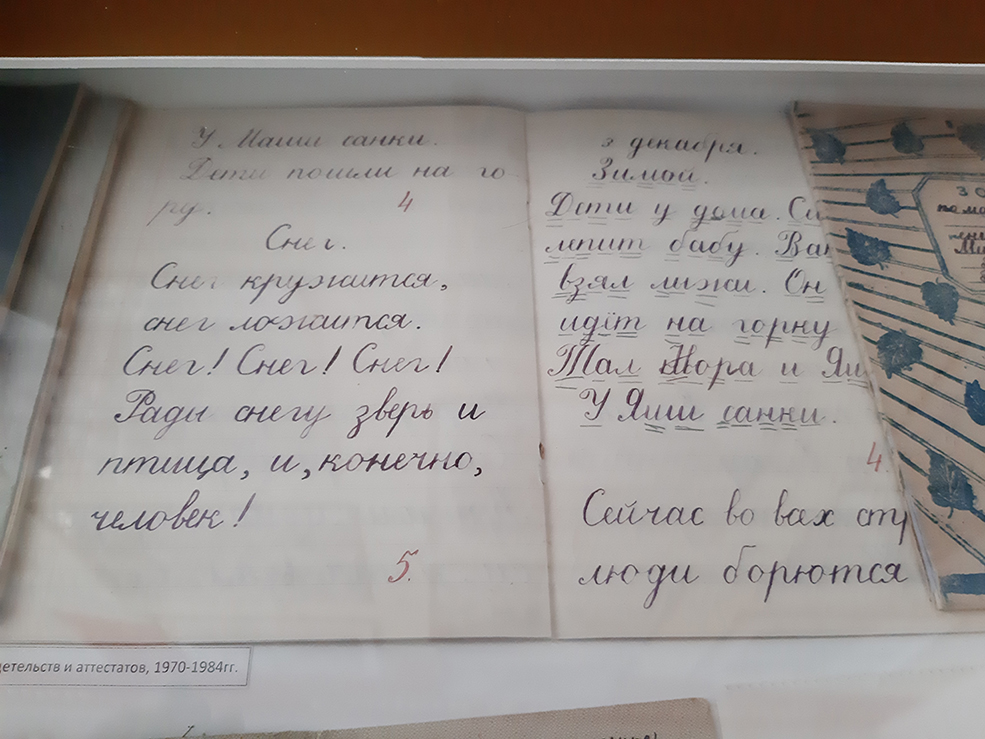 У Маши санки.
Дети пошли на го
ру.
4
Снег.
Снег кружится,
снег ложится.
Снег! Снег! Снег!
Рады снегу зверь и
птица, и, конечно,
человек!
5.
3 декабря.
Зимой.
Дети у дома.
лепит бабу.
взял лыжи. Он
идёт на горку
Там Жора и
У Яши санки.
4.
Сейчас во всех
люди борются
детельств и аттестатов, 1970-1984гг.